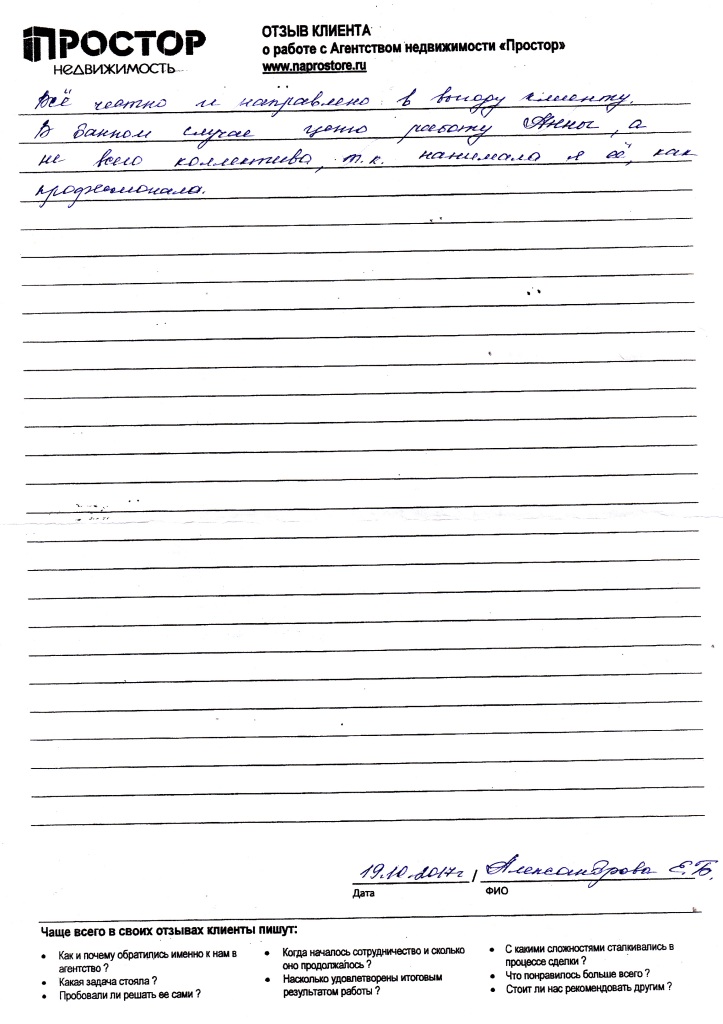 ПРОСТОР
НЕДВИЖИМОСТЬ
ОТЗЫВ КЛИЕНТА
о работе с Агентством недвижимости «Простор»
www.naprostore.ru
Всё честно и направлено в выгоду клиенту.
В данном случае ценю работу Анны, а
не всего коллектива, т.к. нанимала я её, как
профессионала.
19.10.2017г / Александрова Е.Б.
Дата ФИО
Чаще всего в своих отзывах клиенты пишут:
• Как и почему обратились именно к нам в
агентство ?
• Какая задача стояла ?
• Пробовали ли решать ее сами ?
• Когда началось сотрудничество и сколько
оно продолжалось ?
• Насколько удовлетворены итоговым
результатом работы ?
• С какими сложностями сталкивались в
процессе сделки ?
• Что понравилось больше всего ?
• Стоит ли нас рекомендовать другим ?